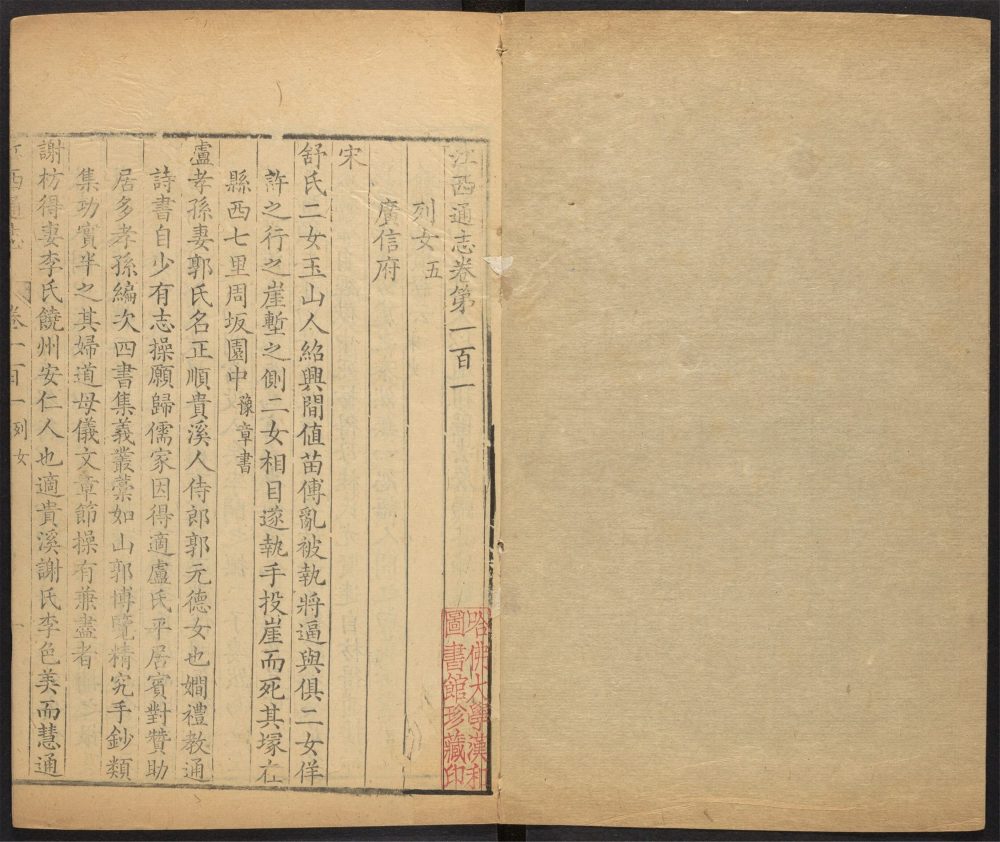 江西通志卷第一百一
列女五
廣信府
宋
舒氏二女玉山人紹興間值苗傅亂被執將逼與俱二女佯
許之行之崖塹之側二女相目遂執手投崖而死其塚在
縣西七里周坂園中豫章書
盧孝孫妻郭氏名正順貴溪人侍郎郭元德女也嫺禮教通
詩書自少有志操願歸儒家因得適盧氏平居賓對贊助
居多孝孫編次四書集義叢藁如山郭博覽精究手鈔類
集功實半之其婦道母儀文章節操有兼盡者
謝枋得妻李氏饒州安仁人也適貴溪謝氏李色美而慧通
江西通志 卷一百一 列女
哈佛大學漢和
圖書館珍藏印